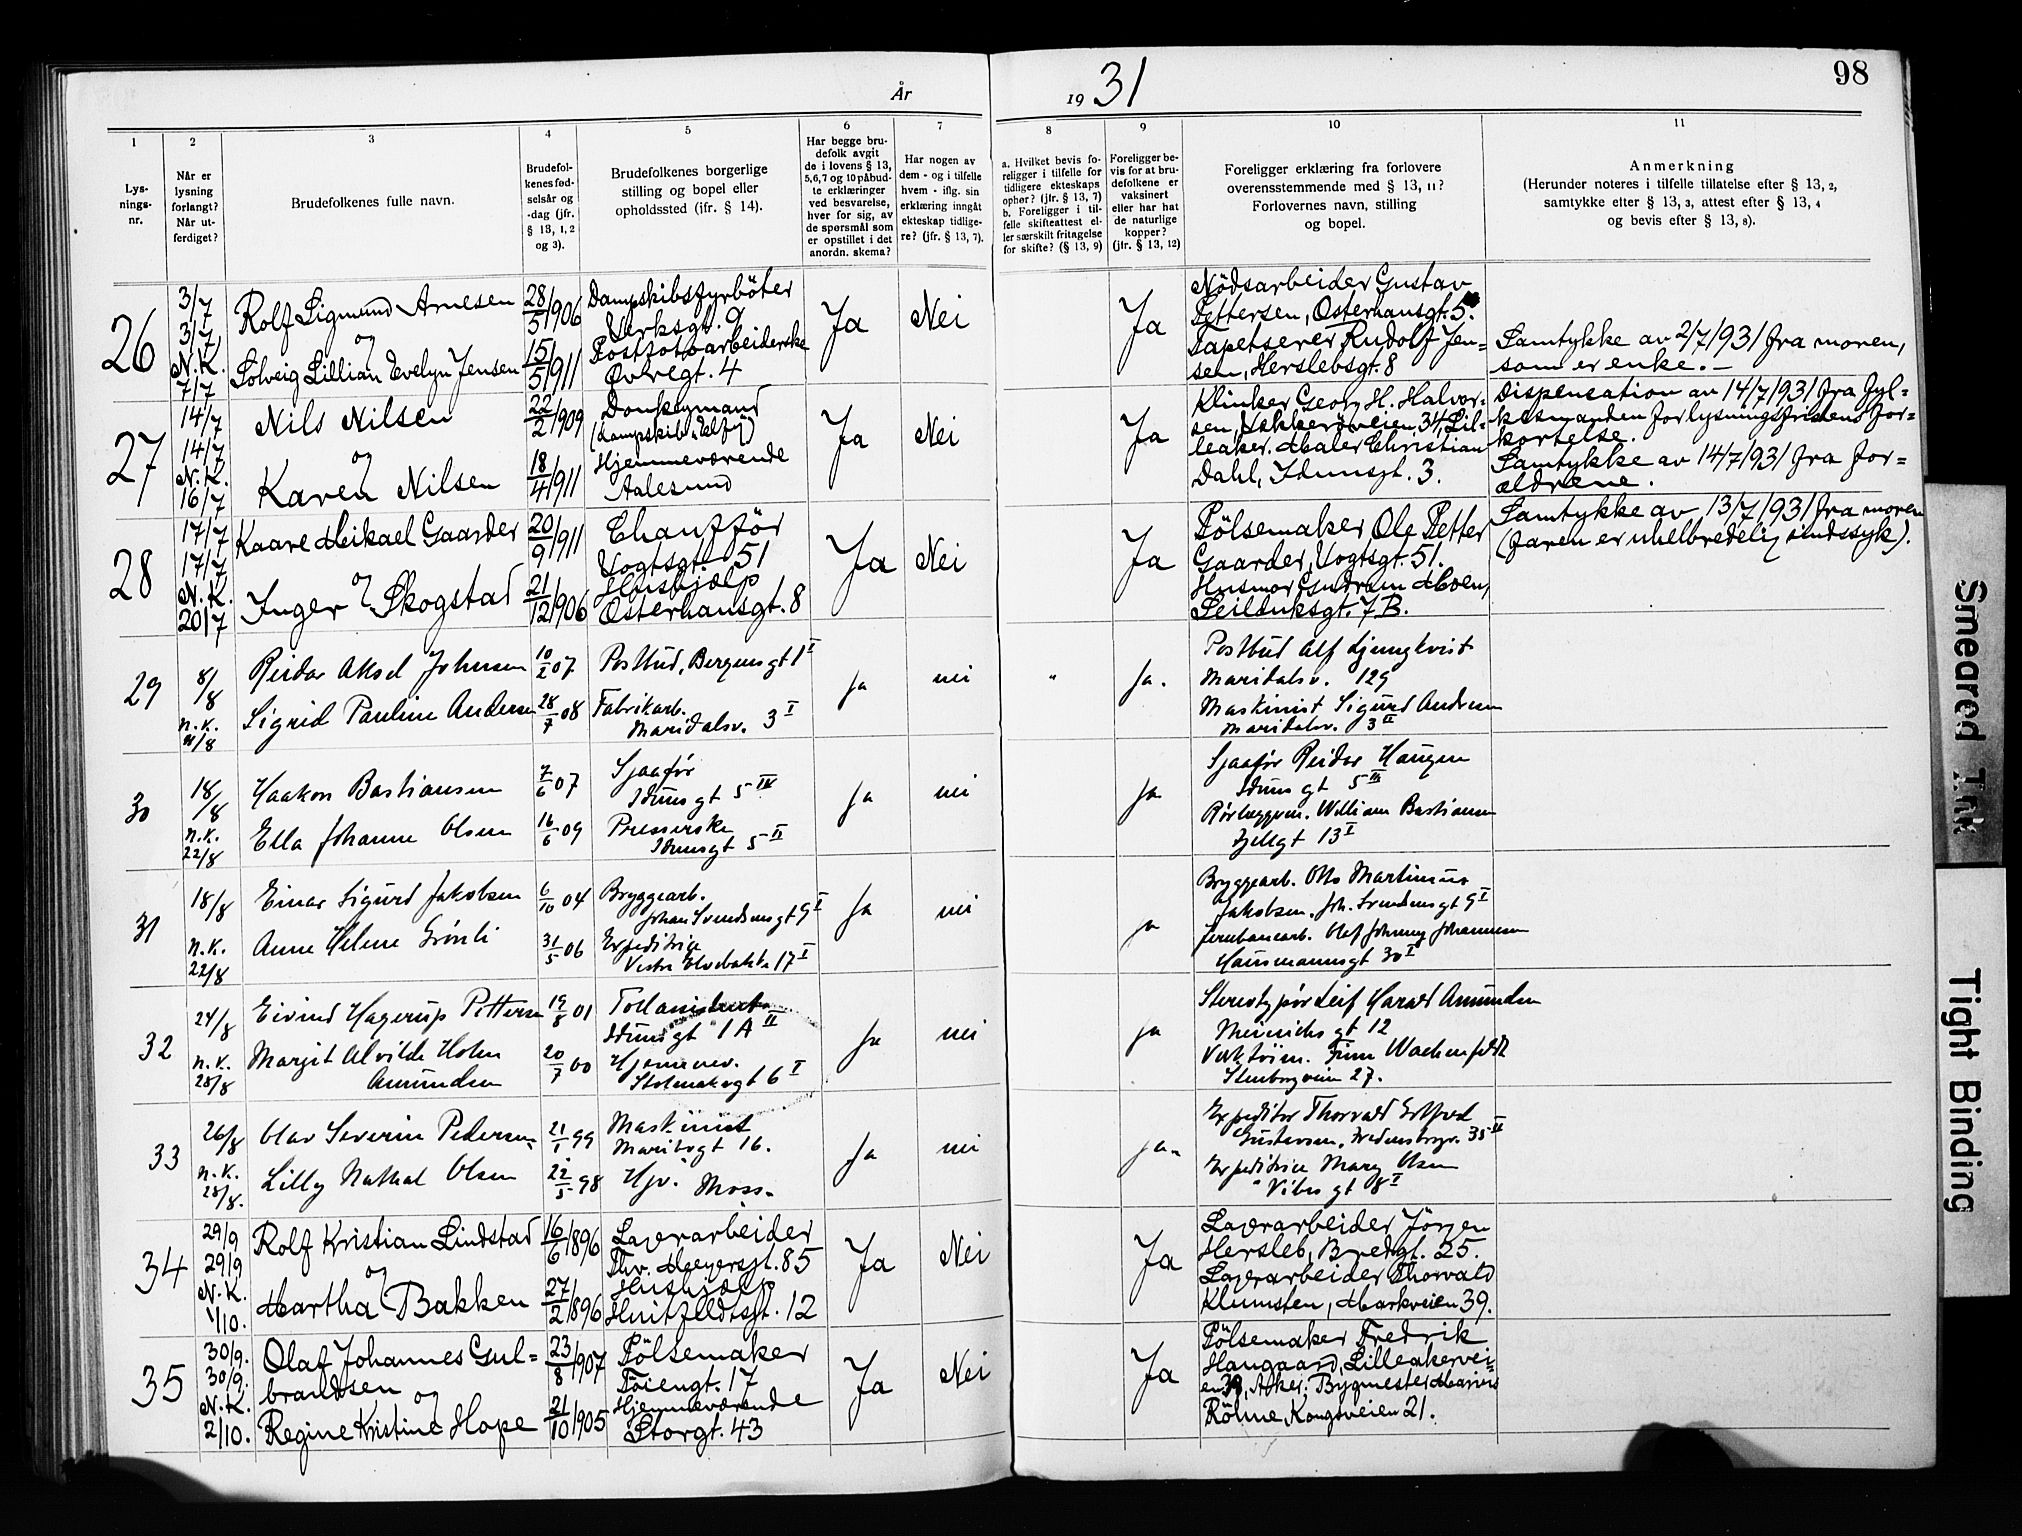 År 1931
98
1
2
3
4
5
6
7
8
9
10
11
Lys-
nings-
nr.
Når er
lysning
forlangt?
Når ut-
ferdiget?
Brudefolkenes fulle navn.
Brudefol-
kenes fød-
selsår og
-dag (jfr.
§ 13, 1, 2
og 3).
Brudefolkenes borgerlige
stilling og bopel eller
opholdssted (jfr. § 14).
Har begge bru-
defolk avgit
de i lovens § 13,
5, 6, 7 og 10 påbud-
te erklæringer
ved besvarelse,
hver for sig, av
de spørsmål som
er opstillet i det
anordn. skema?
Har nogen av
dem - og i tilfelle
hvem - iflg. sin
erklæring inngåt
ekteskap tidlige-
re? (jfr. § 13, 7).
a. Hvilket bevis fo-
religger i tilfelle for
tidligere ekteskaps
ophør? (jfr. § 13, 7)
b. Foreligger i til-
felle skifteattest el-
ler særskilt fritagelse
for skifte? (§ 13, 9)
Foreligger be-
vis for at bru-
defolkene er
vaksinert
eller har hat
de naturlige
kopper?
(jfr. § 13, 12)
Foreligger erklæring fra forlovere
overensstemmende med § 13, 11?
Forlovernes navn, stilling
og bopel.
Anmerkning
(Herunder noteres i tilfelle tillatelse efter § 13, 2,
samtykke efter § 13, 3, attest efter § 13, 4
og bevis efter § 13, 8).
26
3/7
3/7
N.K.
7/7
Rolf Sigmund Arnesen
og
Solveig Lillian Evelyn Jensen
28/5 1906
15/5 1911
Dampskibsfyrböter
Verksgt. 9
Övregt. 4
Ja
Nei
Ja
Nödsarbeider Gustav
Pettersen, Osterhausgt. 5.
Tapetserer Rudolf Jen=
sen, Herslebsgt. 8
Samtykke av 2/7 1931 fra moren,
som er enke. —
27
14/7
14/7
N.K.
16/7
Nils Nilsen
og
Karen Nilsen
22/2 1909
18/4 1911
Donkeymand
Hjemmeværende
Aalesund
Ja
Nei
Ja
Klinker Georg H. Halvor=
sen, Vækkeröveien 34, Lil=
leaker. Maler Christian
Dahl, Idunsgt. 3.
Dispensation av 14/7 1931 fra Fyl=
kesmanden for lysningsfristens for=
kortelse.
Samtykke av 14/7 1931 fra for=
ældrene.
28
17/7
17/7
N.K.
20/7
Kaare Mikael Gaarder
og
Inger Skogstad
20/9 1911
21/12 1906
Chauffør
Vogtsgt. 51
Hushjælp
Osterhausgt. 8
Ja
Nei
Ja
Pölsemaker Ole Petter
Gaarder, Vogtsgt. 51.
Husmor Gudrun Moen,
Seilduksgt. 7 B.
Samtykke av 13/7 1931 fra moren
(faren er uhelbredelig sindssyk).
29
8/8
N.K.
Reidar Aksel Johnsen
Sigrid Pauline Andersen
10/2 07
28/7 08
Postbud, Bergensgt 1 I
Fabrikarb.
Maridalsv. 3 I
Ja
nei
"
Ja.
Postbud Alf Ljungkvist
Maridalsv. 129
Maskinist Sigurd Andersen
Maridalsv. 3 II
30
18/8
N.K.
22/8
Haakon Bastiansen
Ella Johanne Olsen
7/6 07
16/6 09
Sjaafør
Iduns gt 5 IV
Presserske
Idunsgt 5 II
Ja
nei
Ja
Sjaafør Reidar Haugen
Iduns gt 5 III
Rørleggerm. William Bastiansen
13 I
31
18/8
N.K.
22/8
Einar Sigurd Jakobsen
Anne Helene Grönli
6/10 04
31/5 06
Bryggearb.
Johan Svendsensgt 9 I
Expeditrice
Vestre Elvebakke 17 I
Ja
nei
Ja
Bryggearb. Otto Martinius
Jakobsen, Joh. Svendsensgt 9 I
Jernbanearb. Olaf Johnny Johannesen
Hausmannsgt 30 I
32
24/8
N.K.
28/8
Eivind Hagerup Pettersen
Margit Alvilde Holm
Amundsen
19/8 01
20/7 00
Tollassistent
Idunsgt 1 A II
Hjemmev.
Stolmakergt 6 I
Ja
nei
Ja
Stereotypør Leif Harald Amundsen
Meinichs gt 12
Finn Wachenfeldt
27.
33
26/8
N.K.
28/8.
Olav Severin Pedersen
Lilly Olsen
21/1 99
22/5 98
Maskinist
16.
Hjv. Moss.
Ja
nei
ja.
Expeditør Thorvald
Gustavsen, Fredensborgv. 35 II
Expeditrice Mary Olsen
Vibes gt 8 I
34
29/9
29/9
N.K.
1/10.
Rolf Kristian Lindstad
og
Martha Bakken
16/6 1896
27/2 1896
Lagerarbeider
Thv. Meyersgt. 85
Hushjælp
Huitfeldtsgt. 12
Ja
Nei
Ja
Lagerarbeider Jörgen
Hersleb, Bredgt. 25.
Lagerarbeider Thorvald
Klumsten, Markveien 39.
35
30/9.
30/9.
N.K.
2/10.
Olaf Johannes Gul=
brandsen
og
Regine Kristine Hope
23/8 1907
21/10 1905
Pölsemaker
Töiengt. 17
Hjemmeværende
Storgt. 43
Ja
Nei
Ja
Pölsemaker Fredrik
Haugaard, Lilleakervei=
en, Aker. Bygmester Marius
Röhne, Kongsveien 21.
Smeared Ink
Tight Binding